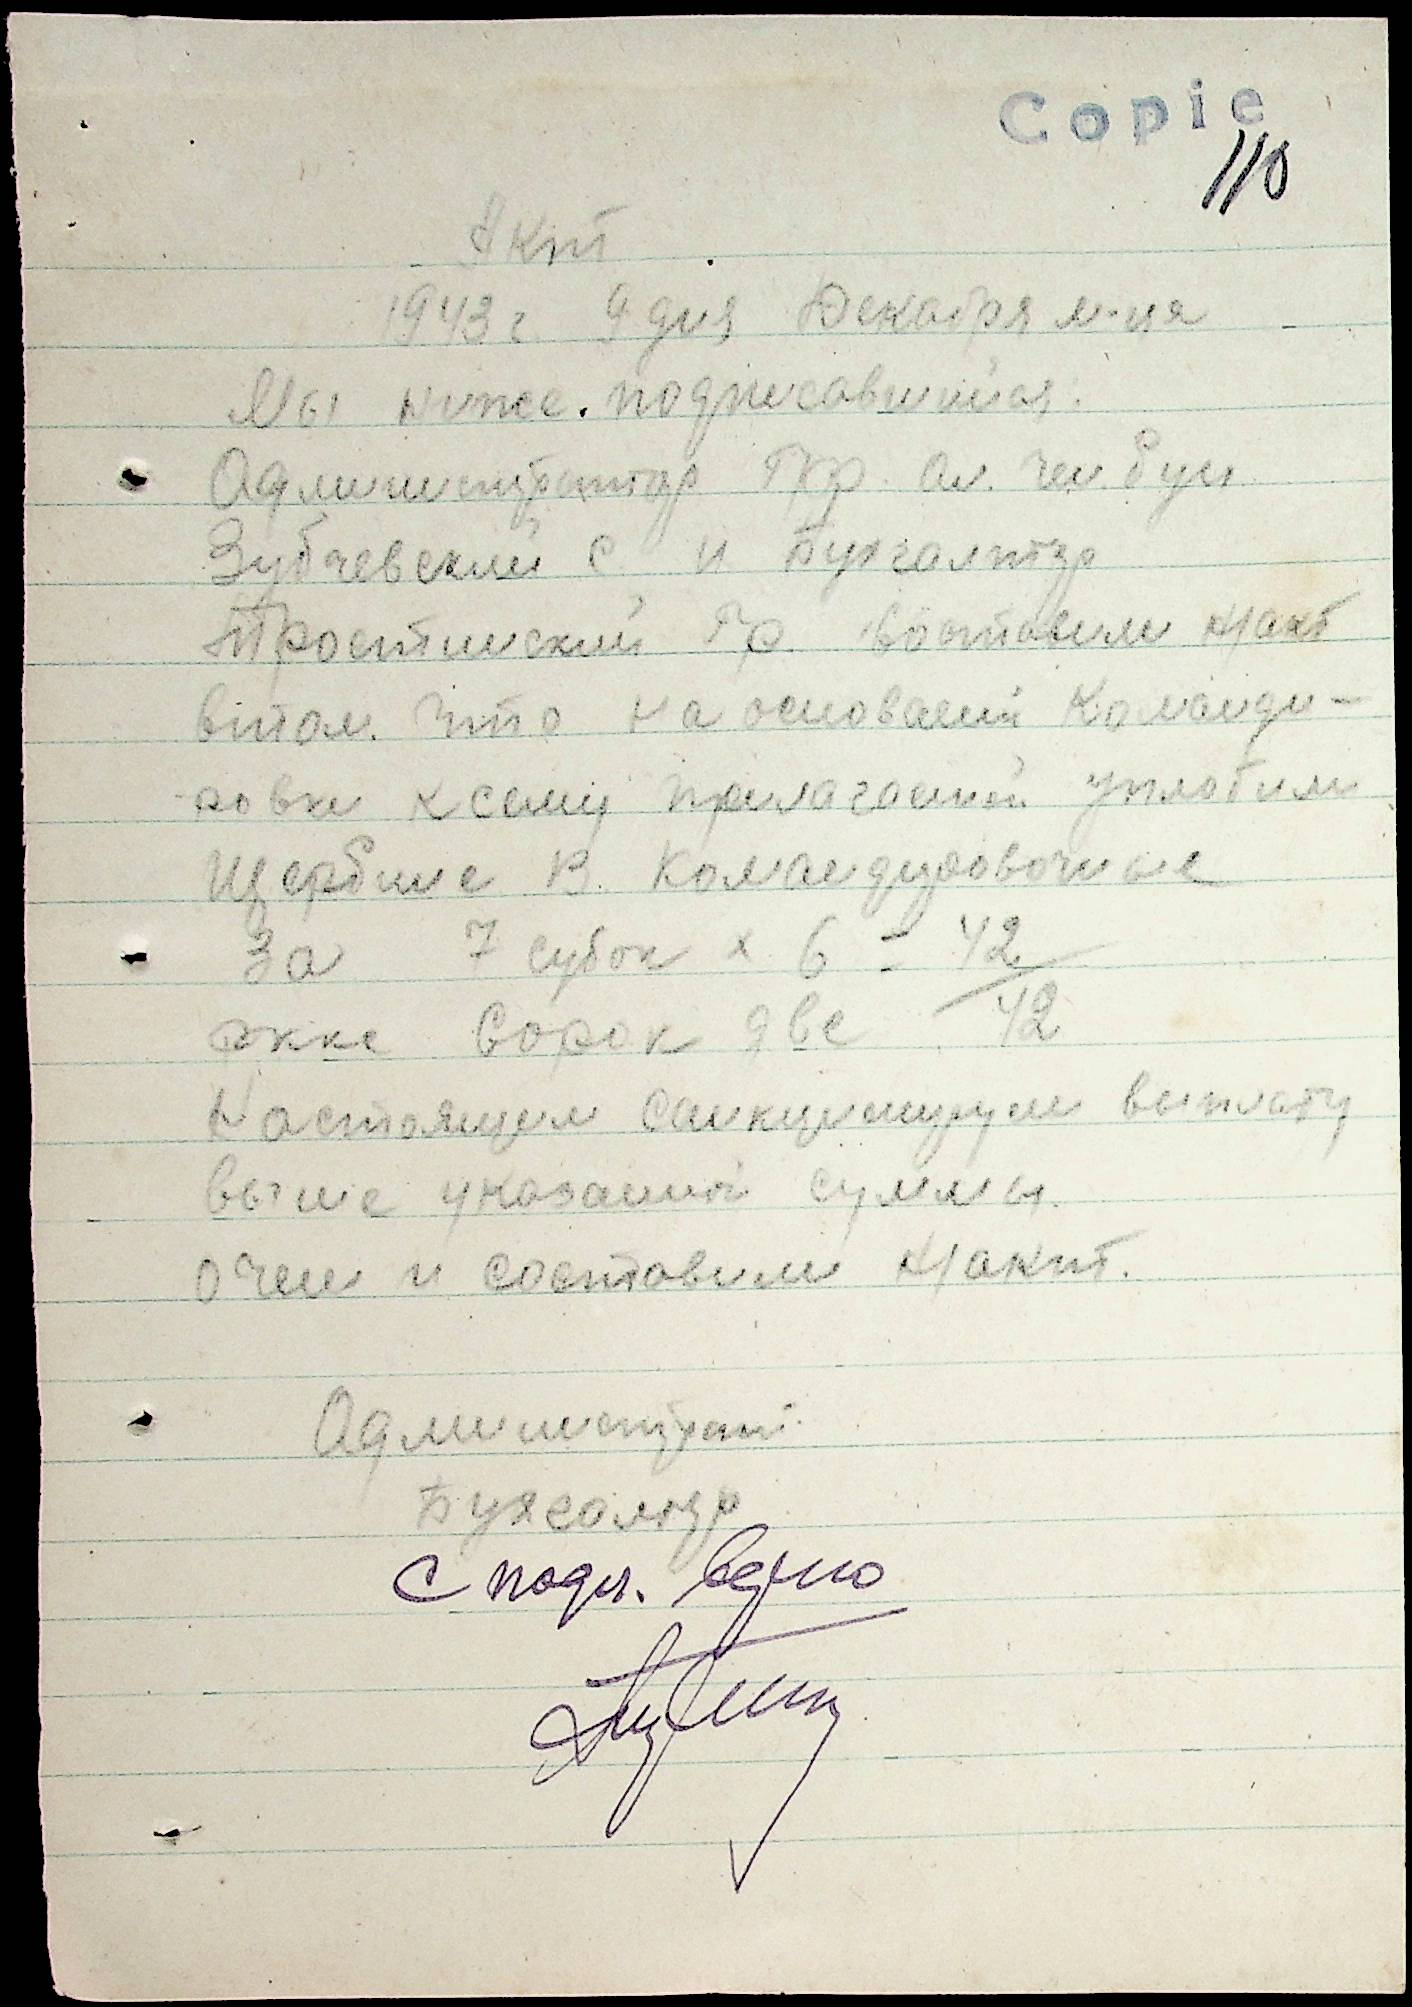 Copie
110
Акт
1943 г. 9 дня Декабря м-ця
Мы ниже. подписавшийся:
Администратор Гр. Ол.
Зубчевский С и Бухгалтер
Тростинский Гр. Состовили Н/акт
втом. что на оснований Команди-
ровки ксему прилагаемой уплатили
Щербине В. Командировочные
За 7 суток х 6 = 42
ркке Сорок две 42
Настоящем Санкцинируем выплату
выше указаной суммы.
О чем и состовили Н/акт.
Администрат.
Бухгалтер
С подл. верно